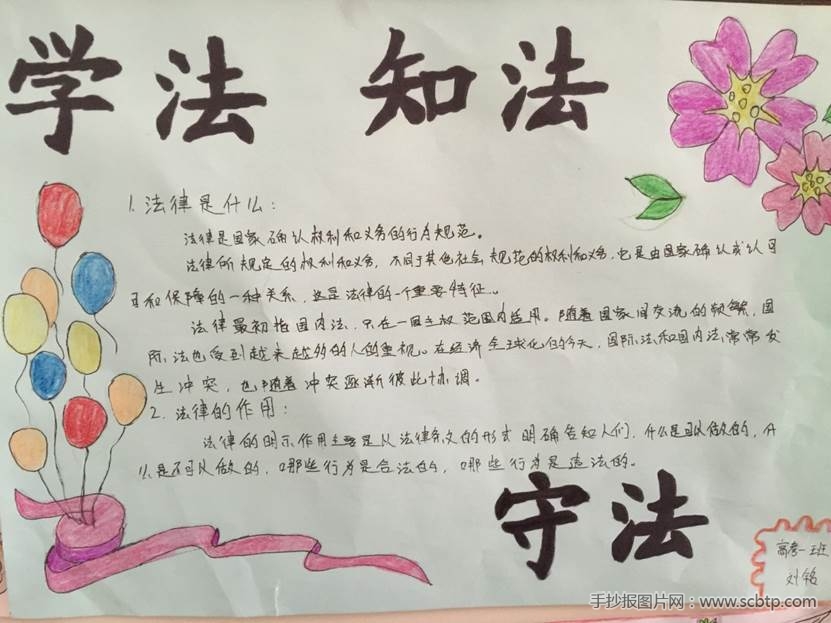 学法 知法
1.法律是什么:
法律是国家确认权利和义务的行为规范。
法律所规定的权利和义务,不同于其他社会规范的权利和义务,它是由国家确认或认可
和保障的一种关系,这是法律的一个重要特征。
法律最初指国内法,只在一国主权范围内适用。随着国家间交流的频繁,国
际法也受到越来越多的人的重视。在经济全球化的今天,国际法和国内法常常发
生冲突,也随着冲突逐渐彼此协调。
2.法律的作用:
法律的明示作用主要是以法律条文的形式明确告知人们,什么是可以做的,什
么是不可以做的,哪些行为是合法的,哪些行为是违法的。
守法
高考一班
刘铭
手抄报图片网:www.scbtp.com